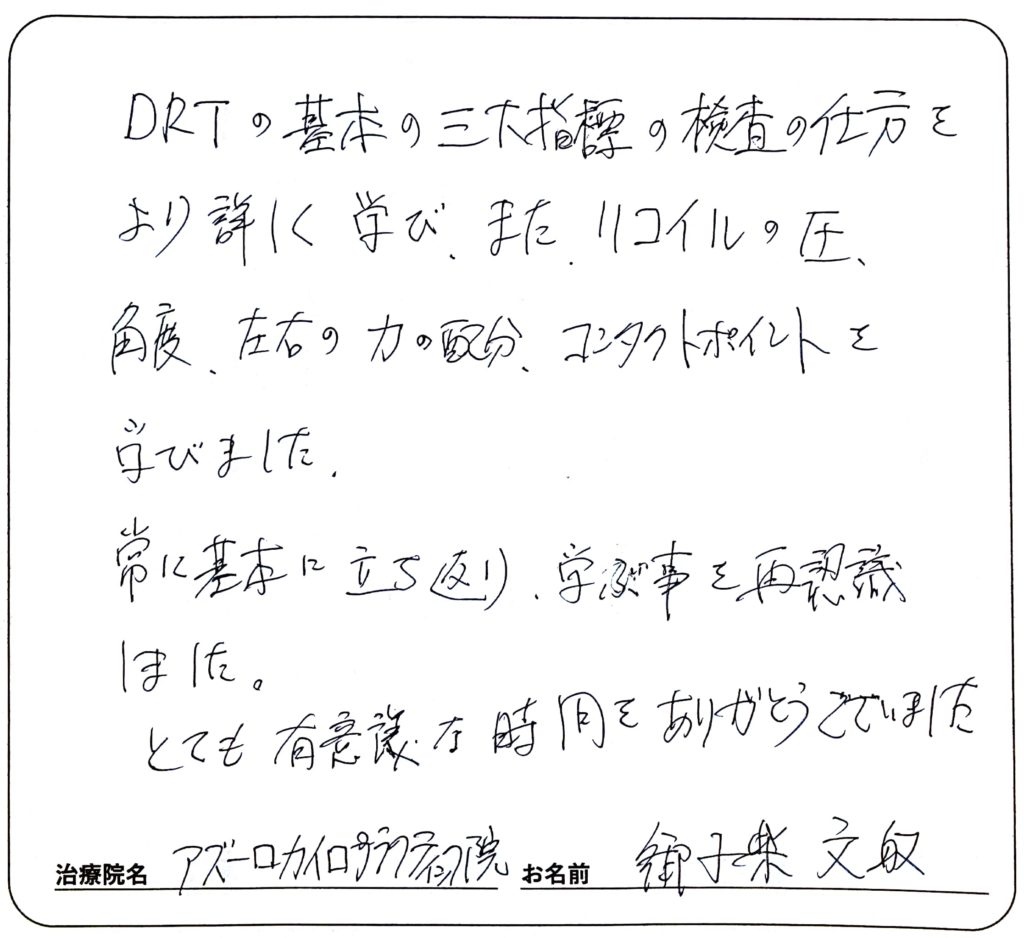 DRTの基本の三大指標の検査の仕方を
より詳しく学び、また、リコイルの圧、
角度、左右の力の配分、コンタクトポイントを
学びました、
常に基本に立ち返り、学ぶ事を再認識
しました。
とても有意義な時間をありがとうございました
治療院名 アズーロカイロプラクティック院 お名前 御子柴 文敏